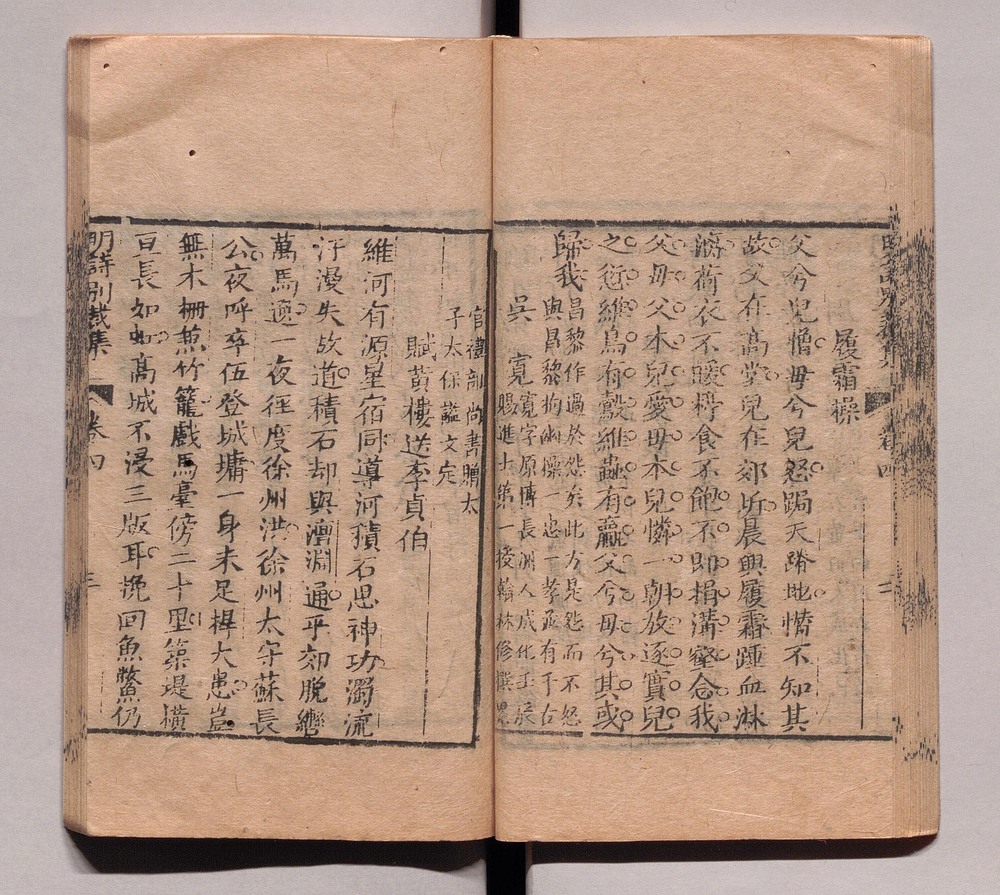 履霜操
父兮兒憎毋兮兒怒跼天蹐地懵不知其
故父在高堂兒在郊圻晨興履霜踵血淋
漓荷衣不暖食不飽不即捐溝壑念我
父毋父本兒愛毋本兒憐一朝放逐實兒
之愆維鳥有鷇維蟲有蠃父兮毋兮其或
歸我
昌黎作過於怨矣此方是怨而不怒
與昌黎拘幽操一忠一孝並有千古
吳寬
寬字原博長洲人成化壬辰
賜進士第一授翰林修撰累
官禮部尚書贈太
子太保諡文定
賦黃樓送李貞伯
維河有源星宿同導河積石思神功濁流
汗漫失故道積石却與澶淵通乎郊脫轡
萬馬逸一夜徑度徐州洪徐州太守蘇長
公夜呼卒伍登城墉一身未足捍大患豈
無木柵兼竹籠戲馬臺傍二十里築堤橫
亘長如虹高城不浸三版耳挽回魚鱉仍
明詩別裁集 卷四 三